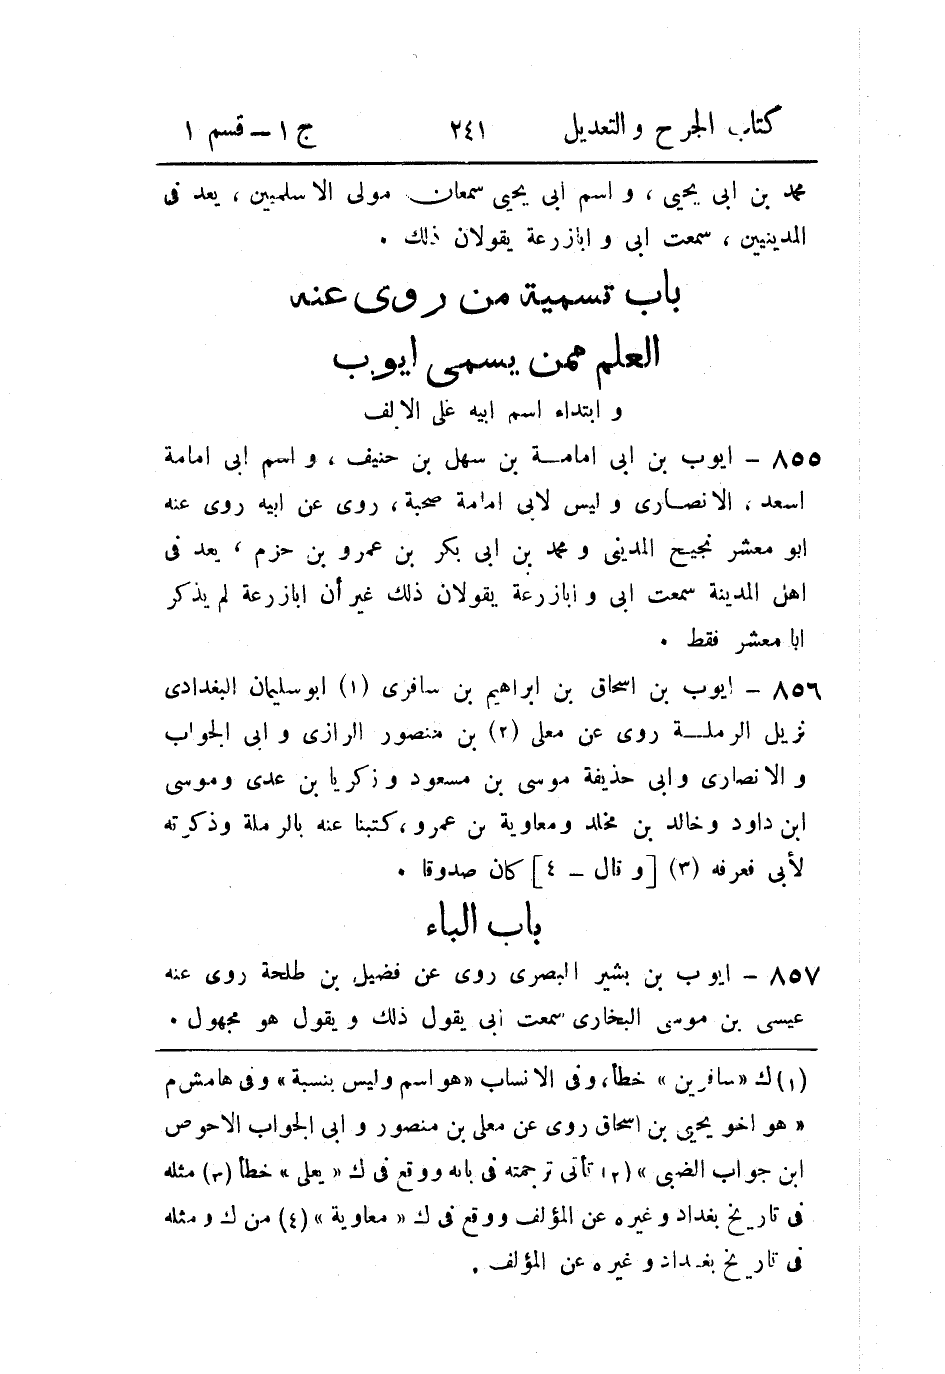 كتاب الجرح والتعديل ٢٤١ ج ١ – قسم ١
محمد بن ابى يحيى ، و اسم ابى يحيى سمعان مولى الاسلميين ، يعد فى
المدينيين ، سمعت ابى و ابازرعة يقولان ذلك .
باب تسمية من روى عنه
العلم ممن يسمى ايوب
و ابتداء اسم ابيه على الالف
٨٥٥ – ايوب بن ابى امامة بن سهل بن حنيف ، و اسم ابى امامة
اسعد ، الانصارى و ليس لابى امامة صحبة ، روى عن ابيه روى عنه
ابو معشر نجيح المدينى و محمد بن ابى بكر بن عمرو بن حزم ، يعد فى
اهل المدينة سمعت ابى و ابازرعة يقولان ذلك غير أن ابازرعة لم يذكر
ابا معشر فقط .
٨٥٦ – ايوب بن اسحاق بن ابراهيم بن سافرى (١) ابو سليمان البغدادى
نزيل الرملة روى عن معلى (٢) بن منصور الرازى و ابى الجواب
و الانصارى و ابى حذيفة موسى بن مسعود و زكريا بن عدى وموسى
ابن داود وخالد بن مخلد ومعاوية بن عمرو ، كتبنا عنه بالرملة وذكرته
لأبى فعرفه (٣) [و قال – ٤] كان صدوقا .
باب الباء
٨٥٧ – ايوب بن بشير البصرى روى عن فضيل بن طلحة روى عنه
عيسى بن موسى البخارى سمعت ابى يقول ذلك و يقول هو مجهول .
(١) ك «سافرين» خطأ، وفى الانساب «هو اسم وليس بنسبة» وفى هامش م
« هو اخو يحيى بن اسحاق روى عن معلى بن منصور و ابى الجواب الاحوص
ابن جواب الضبى » (٢) تأتى ترجمته فى بابه ووقع فى ك « يعلى » خطأ (٣) مثله
فى تاريخ بغداد وغيره عن المؤلف ووقع فى ك « معاوية » (٤) من ك و مثله
فى تاريخ بغداد و غيره عن المؤلف .